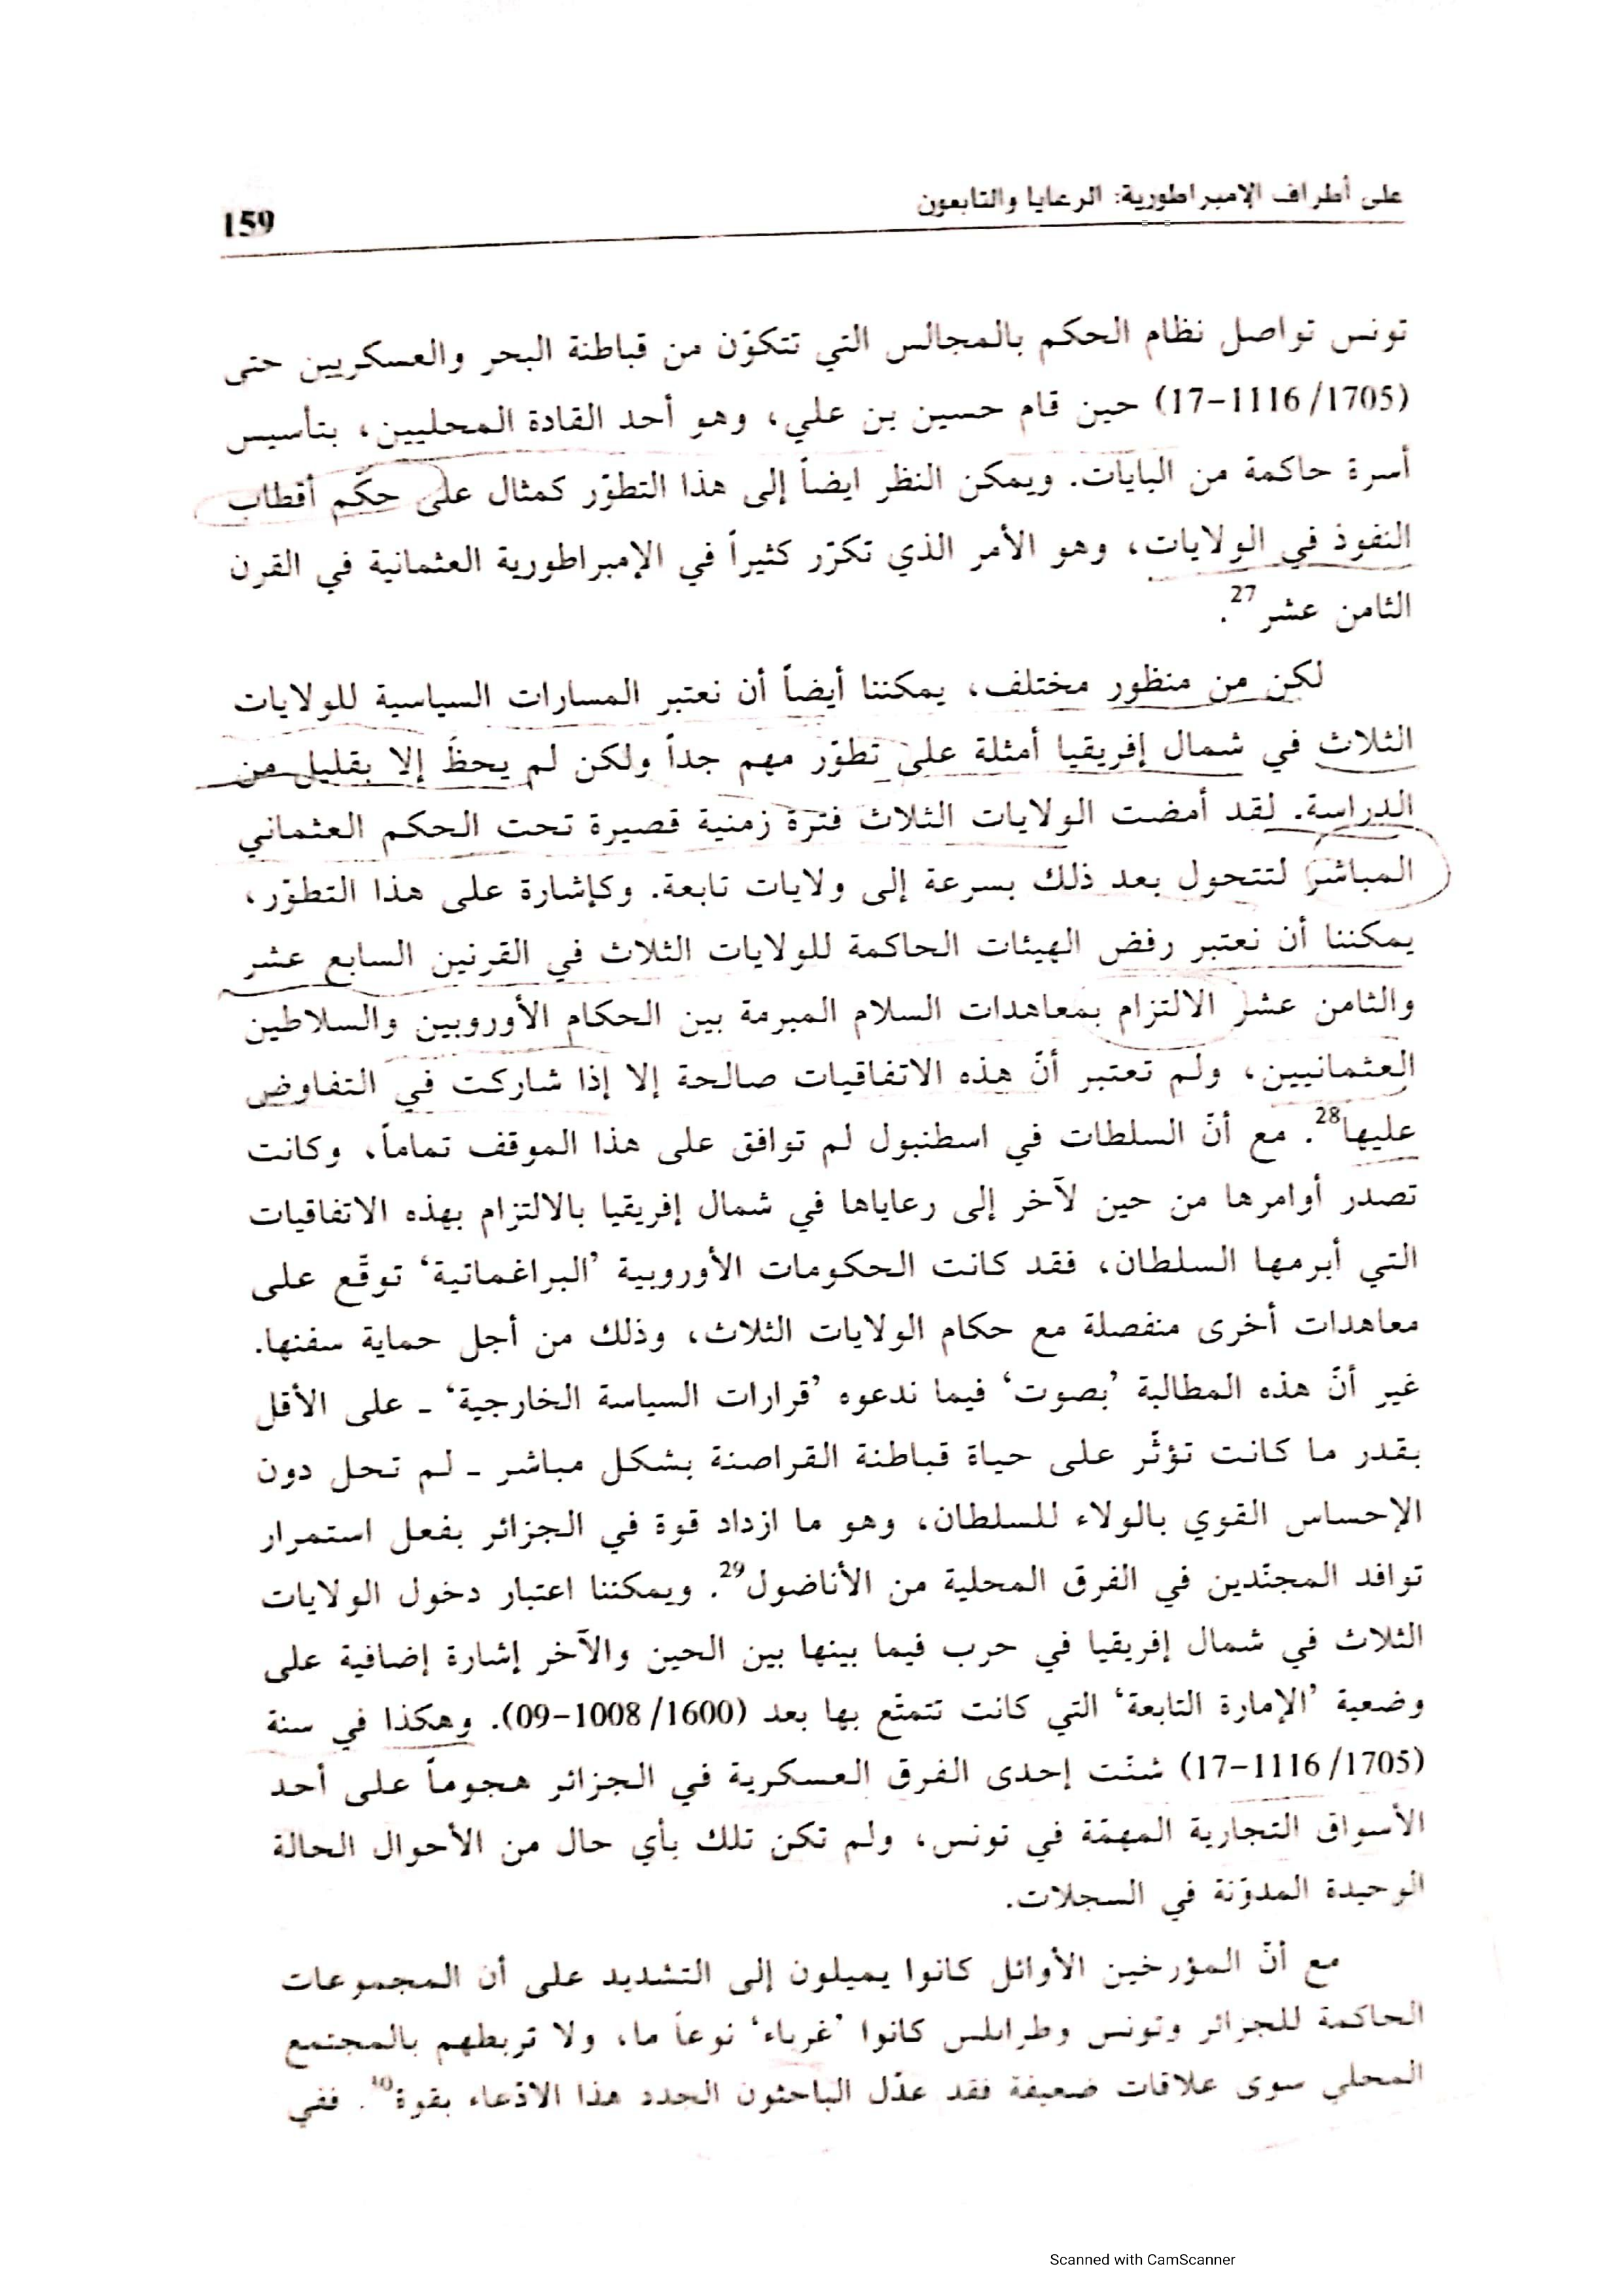 على أطراف الإمبراطورية: الرعايا والتابعون
159
تونس تواصل نظام الحكم بالمجالس التي تتكوّن من قباطنة البحر والعسكريين حتى
(1705/1116-17) حين قام حسين بن علي، وهو أحد القادة المحليين، بتأسيس
أسرة حاكمة من البايات. ويمكن النظر ايضاً إلى هذا التطوّر كمثال على حكّم أقطاب
النفوذ في الولايات، وهو الأمر الذي تكرّر كثيراً في الإمبراطورية العثمانية في القرن
الثامن عشر27.
لكن من منظور مختلف، يمكننا أيضاً أن نعتبر المسارات السياسية للولايات
الثلاث في شمال إفريقيا أمثلة على تطوّر مهم جداً ولكن لم يحظَ إلا بقليل من
الدراسة. لقد أمضت الولايات الثلاث فترة زمنية قصيرة تحت الحكم العثماني
المباشر لتتحول بعد ذلك بسرعة إلى ولايات تابعة. وكإشارة على هذا التطوّر،
يمكننا أن نعتبر رفض الهيئات الحاكمة للولايات الثلاث في القرنين السابع عشر
والثامن عشر الالتزام بمعاهدات السلام المبرمة بين الحكام الأوروبيين والسلاطين
العثمانيين، ولم تعتبر أنّ هذه الاتفاقيات صالحة إلا إذا شاركت في التفاوض
عليها28. مع أنّ السلطات في اسطنبول لم توافق على هذا الموقف تماماً، وكانت
تصدر أوامرها من حين لآخر إلى رعاياها في شمال إفريقيا بالالتزام بهذه الاتفاقيات
التي أبرمها السلطان، فقد كانت الحكومات الأوروبية ’البراغماتية‘ توقّع على
معاهدات أخرى منفصلة مع حكام الولايات الثلاث، وذلك من أجل حماية سفنها.
غير أنّ هذه المطالبة ’بصوت‘ فيما ندعوه ’قرارات السياسة الخارجية‘ ـ على الأقل
بقدر ما كانت تؤثّر على حياة قباطنة القراصنة بشكل مباشر ـ لم تحل دون
الإحساس القوي بالولاء للسلطان، وهو ما ازداد قوة في الجزائر بفعل استمرار
توافد المجنّدين في الفرق المحلية من الأناضول29. ويمكننا اعتبار دخول الولايات
الثلاث في شمال إفريقيا في حرب فيما بينها بين الحين والآخر إشارة إضافية على
وضعية ’الإمارة التابعة‘ التي كانت تتمتّع بها بعد (1600/1008-09). وهكذا في سنة
(1705/1116-17) شنّت إحدى الفرق العسكرية في الجزائر هجوماً على أحد
الأسواق التجارية المهمّة في تونس، ولم تكن تلك بأي حال من الأحوال الحالة
الوحيدة المدوّنة في السجلات.
مع أنّ المؤرخين الأوائل كانوا يميلون إلى التشديد على أن المجموعات
الحاكمة للجزائر وتونس وطرابلس كانوا ’غرباء‘ نوعاً ما، ولا تربطهم بالمجتمع
المحلي سوى علاقات ضعيفة فقد عدّل الباحثون الجدد هذا الادّعاء بقوة. ففي
Scanned with CamScanner